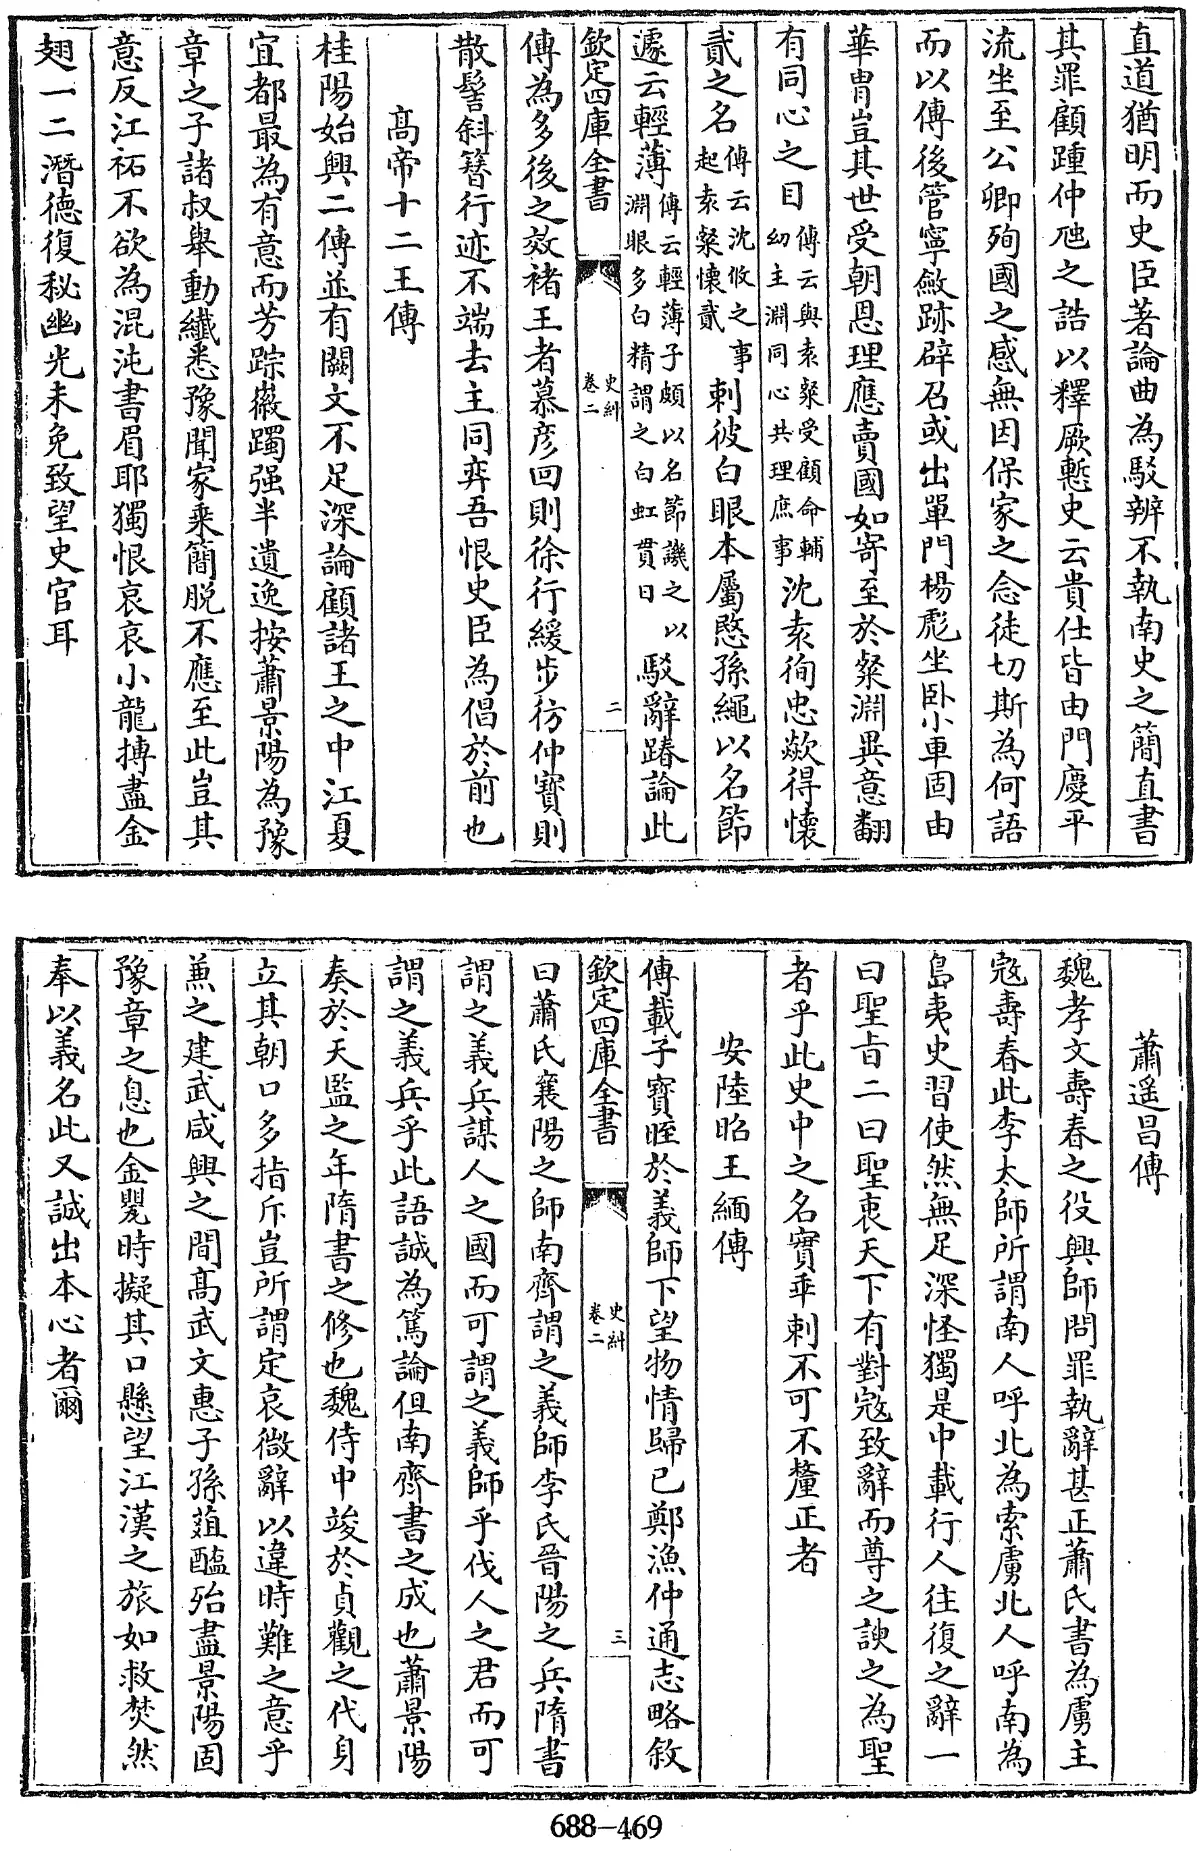 直道猶明而史臣著論曲為駁辨不執南史之簡直書
其罪顧踵仲虺之誥以釋厥慙史云貴仕皆由門慶平
流坐至公卿殉國之感無因保家之念徒切斯為何語
而以傳後管寧斂跡辟召或出單門楊彪坐臥小車固由
華胄豈其世受朝恩理應賣國如寄至於粲淵異意翻
有同心之目傳云與袁粲受顧命輔幼主淵同心共理庶事沈袁徇忠歘得懷
貳之名傳云沈攸之事起袁粲懷貳刺彼白眼本屬愍孫繩以名節
遽云輕薄傳云輕薄子頗以名節譏之以淵眼多白精謂之白虹貫日駁辭踳論此
欽定四庫全書
史糾
卷二
二
傳為多後之效褚王者慕彦回則徐行緩步彷仲寳則
散髻斜簪行迹不端去主同弈吾恨史臣為倡於前也
髙帝十二王傳
桂陽始興二傳並有闕文不足深論顧諸王之中江夏
宜都最為有意而芳踪徽躅强半遺逸按蕭景陽為豫
章之子諸叔舉動纖悉豫聞家乗簡脱不應至此豈其
意反江祏不欲為混沌書眉耶獨恨哀哀小龍摶盡金
翅一二潛德復秘幽光未免致望史官耳
蕭遥昌傳
魏孝文壽春之役興師問罪執辭甚正蕭氏書為虜主
宼壽春此李太師所謂南人呼北為索虜北人呼南為
島夷史習使然無足深怪獨是中載行人往復之辭一
曰聖旨二曰聖衷天下有對宼致辭而尊之諛之為聖
者乎此史中之名實乖刺不可不釐正者
安陸昭王緬傳
傳載子寳晊於義師下望物情歸已鄭漁仲通志略敘
欽定四庫全書
史糾
卷二
三
曰蕭氏襄陽之師南齊謂之義師李氏晉陽之兵隋書
謂之義兵謀人之國而可謂之義師乎伐人之君而可
謂之義兵乎此語誠為篤論但南齊書之成也蕭景陽
奏於天監之年隋書之修也魏侍中竣於貞觀之代身
立其朝口多指斥豈所謂定哀微辭以違時難之意乎
兼之建武咸興之間髙武文惠子孫葅醢殆盡景陽固
豫章之息也金甖時擬其口懸望江漢之旅如救焚然
奉以義名此又誠出本心者爾
688-469